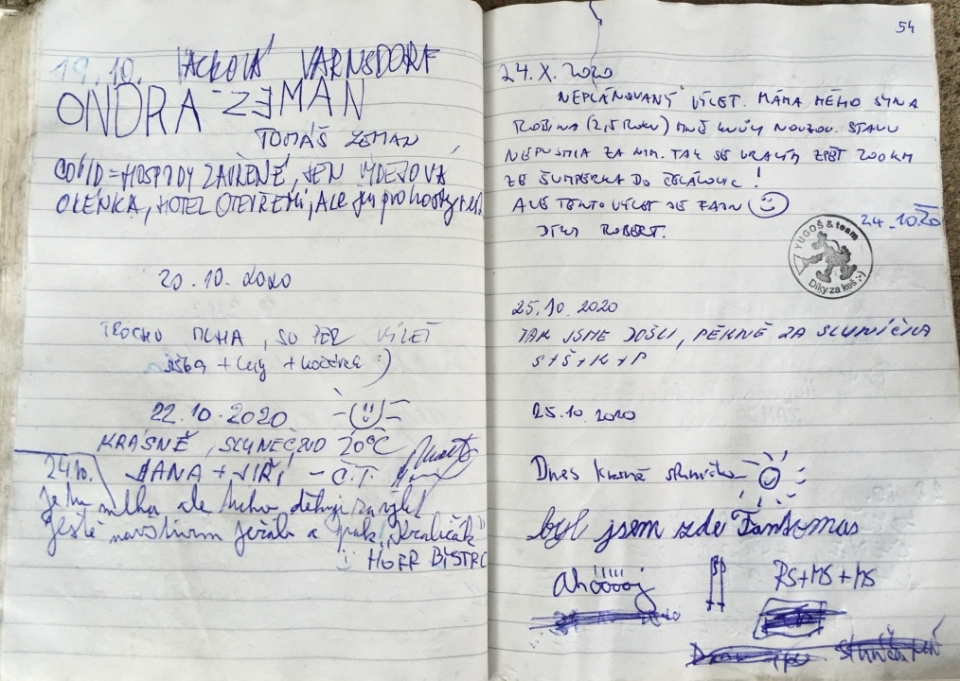 19.10. VACKOVÁ VARNSDORF
ONDRA ZEMAN
TOMÁŠ ZEMAN
COVID = HOSPODY ZAVŘENÉ, JEN VÝDEJOVÁ
OKÉNKA, HOTEL OTEVŘENÝ, ALE jen pro hosty
20.10.2020
TROCHU MLHA, SUPER VÝLET
+ kočárek :)
22.10.2020
KRÁSNĚ, SLUNEČNO 20°C
HANA + JIŘÍ - Č.T.
24.10.
Je tu mlha ale ticho, děkuji za výlet
Ještě navštívím jeřába a pak "Kraličák"
HOFR BISTRO
54
24.X.2020
NEPLÁNOVANÝ VÝLET. MÁMA MÉHO SYNA
ROBINA (2,5 ROKU) MNĚ KVŮLI NOUZOV. STAVU
NEPUSTILA ZA NÍM. TAK SE VRACÍM ZPĚT 200 KM
ZE ŠUMPERKA DO ČELÁKOVIC!
ALE TENTO VÝLET JE FAJN
ROBERT.
24.10.20
YUGOŠ & team
Díky za keš :-)
25.10.2020
TAK JSME DOŠLI, PĚKNĚ ZA SLUNÍČKA
S+Š+K+P
25.10.2020
Dnes krásně sluníčko
byl jsem zde Fantomas
ahóóóój
RS+MS+MS